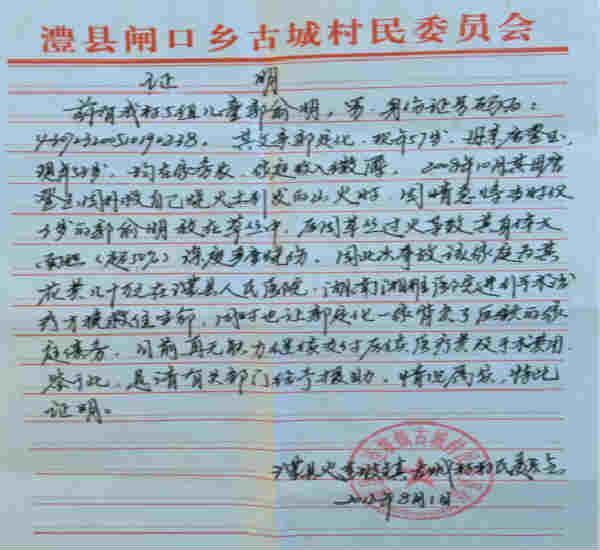 澧县闸口乡古城村民委员会
证 明
兹有我村5组儿童郭俞明，男，身份证号码为：
其父亲郭庆化，现年57岁，母亲唐登玉，
现年51岁，均在家务农，家庭收入微薄。2008年10月其母唐
登玉因扑救自己烧火土引发的山火时，因情急将当时仅
3岁的郭俞明放在草丛中，后因草丛过火导致其身体大
面积（超50%）深度严重烧伤，因此次事故该家庭为其
花费几十万元在澧县人民医院、湖南湘雅医院进行手术治
疗才挽救住生命，同时也让郭庆化一家背负了巨额的家
庭债务，目前再无能力继续支付后续医疗费及手术费用。
鉴于此，恳请有关部门给予援助，情况属实，特此
证明。
澧县火连坡镇古城村村民委员会
2012年8月1日